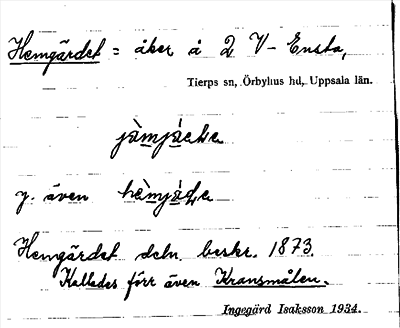 Hemgärdet = åker å 2 V-Ensta,
Tierps sn, Örbyhus hd, Uppsala län.
y. även
Hemgärdet deln. beskr. 1873.
Kallades förr även Kransmålen.
Ingegärd Isaksson 1934.